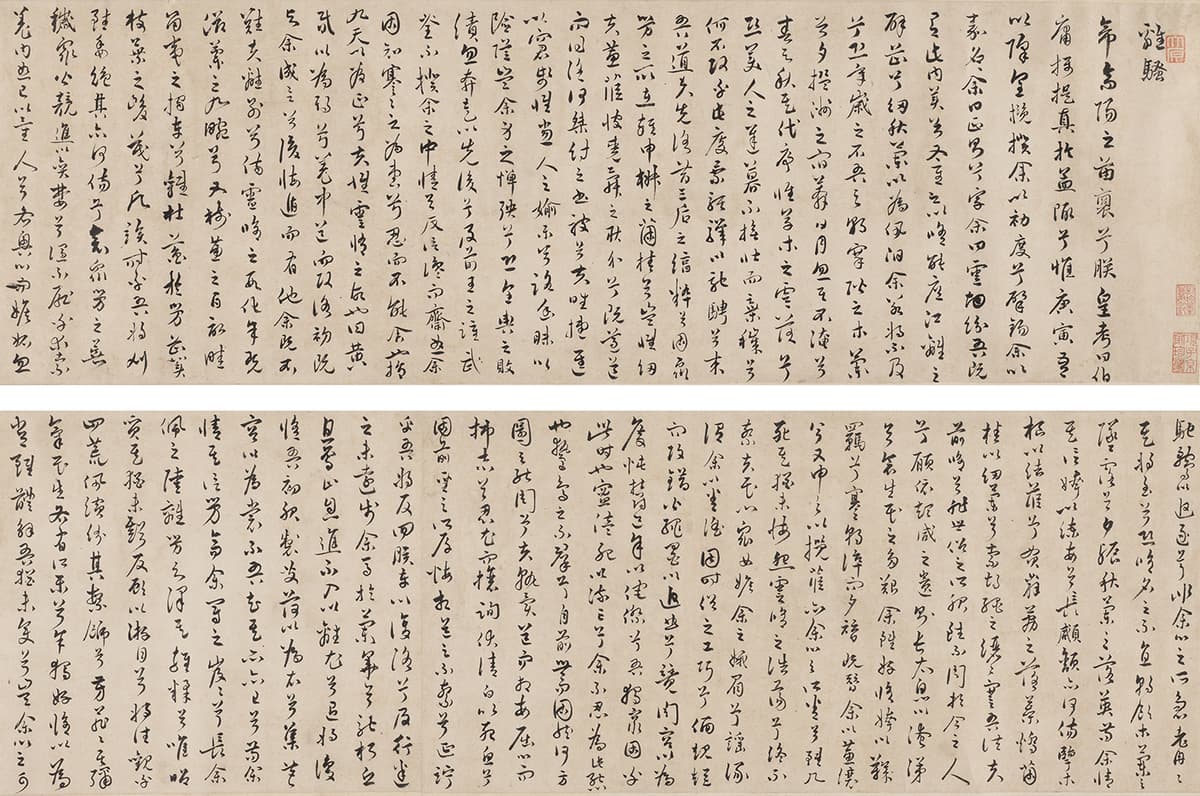 離騷
帝高陽之苗裔兮朕皇考曰伯
庸攝提貞於孟陬兮惟庚寅吾
以降皇覽揆余以初度兮肇錫余以
嘉名余曰正則兮字余曰靈均紛吾既
有此內美兮又重之以脩能扈江離與
辟芷兮紉秋蘭以為佩汩余若將不及
兮恐年歲之不吾與朝搴阰之木蘭
兮夕攬洲之宿莽日月忽其不淹兮
春與秋其代序惟草木之零落兮
恐美人之遲暮不撫壯而棄穢兮
何不改乎此度乘騏驥以馳騁兮來
吾道夫先路昔三后之純粹兮固眾
芳之所在雜申椒之菌桂兮豈惟紉
夫蕙茝彼堯舜之耿介兮既遵道
而得路何桀紂之昌披兮夫唯捷徑
以窘步惟黨人之偷樂兮路幽昧以
險隘豈余身之憚殃兮恐皇輿之敗
績忽奔走以先後兮及前王之踵武
荃不揆余之中情兮反信讒而齌怒余
固知謇謇之為患兮忍而不能舍也指
九天以為正兮夫惟靈脩之故也曰黃
昏以為期兮羌中道而改路初既
與余成言兮後悔遁而有他余既不
難夫離別兮傷靈脩之數化余既
滋蘭之九畹兮又樹蕙之百畝畦
留夷與揭車兮雜杜蘅與芳芷冀
枝葉之峻茂兮願竢時乎吾將刈
雖萎絕其亦何傷兮哀眾芳之蕪
穢眾皆競進以貪婪兮憑不厭乎求索
羌內恕己以量人兮各興心而嫉妒忽
馳騖以追逐兮非余心之所急老冉冉
其將至兮恐脩名之不立朝飲木蘭之
墜露兮夕餐秋菊之落英苟余情
其信姱以練要兮長顑頷亦何傷擥木
根以結茝兮貫薜荔之落蕊矯菌
桂以紉蕙兮索胡繩之纚纚謇吾法夫
前脩兮非世俗之所服雖不周於今之人
兮願依彭咸之遺則長太息以掩涕
兮哀生民之多艱余雖好脩姱以鞿
羈兮謇朝誶而夕替既替余以蕙纕
兮又申之以攬茝亦余心之所善兮雖九
死其猶未悔怨靈脩之浩蕩兮終不
察夫民心眾女嫉余之蛾眉兮謠諑
謂余以善淫固時俗之工巧兮偭規矩
而改錯背繩墨以追曲兮競周容以為
度忳鬱邑余侘傺兮吾獨窮困乎
此時也寧溘死以流亡兮余不忍為此態
也鷙鳥之不群兮自前世而固然何方
圜之能周兮夫孰異道而相安屈心而
抑志兮忍尤而攘詢伏清白以死直兮
固前聖之所厚悔相道之不察兮延佇
乎吾將反回朕車以復路兮及行迷
之未遠步余馬於蘭皋兮馳椒丘
且焉止息進不入以離尤兮退將復
脩吾初服製芰荷以為衣兮集芙
蓉以為裳不吾知其亦已兮苟余
情其信芳高余冠之岌岌兮長余
佩之陸離芳與澤其雜糅兮唯昭
質其猶未虧反顧以遊目兮將往觀乎
四荒佩繽紛其繁飾兮芳菲菲其彌
章民生各有所樂兮余獨好脩以為
常雖體解吾猶未變兮豈余心之可